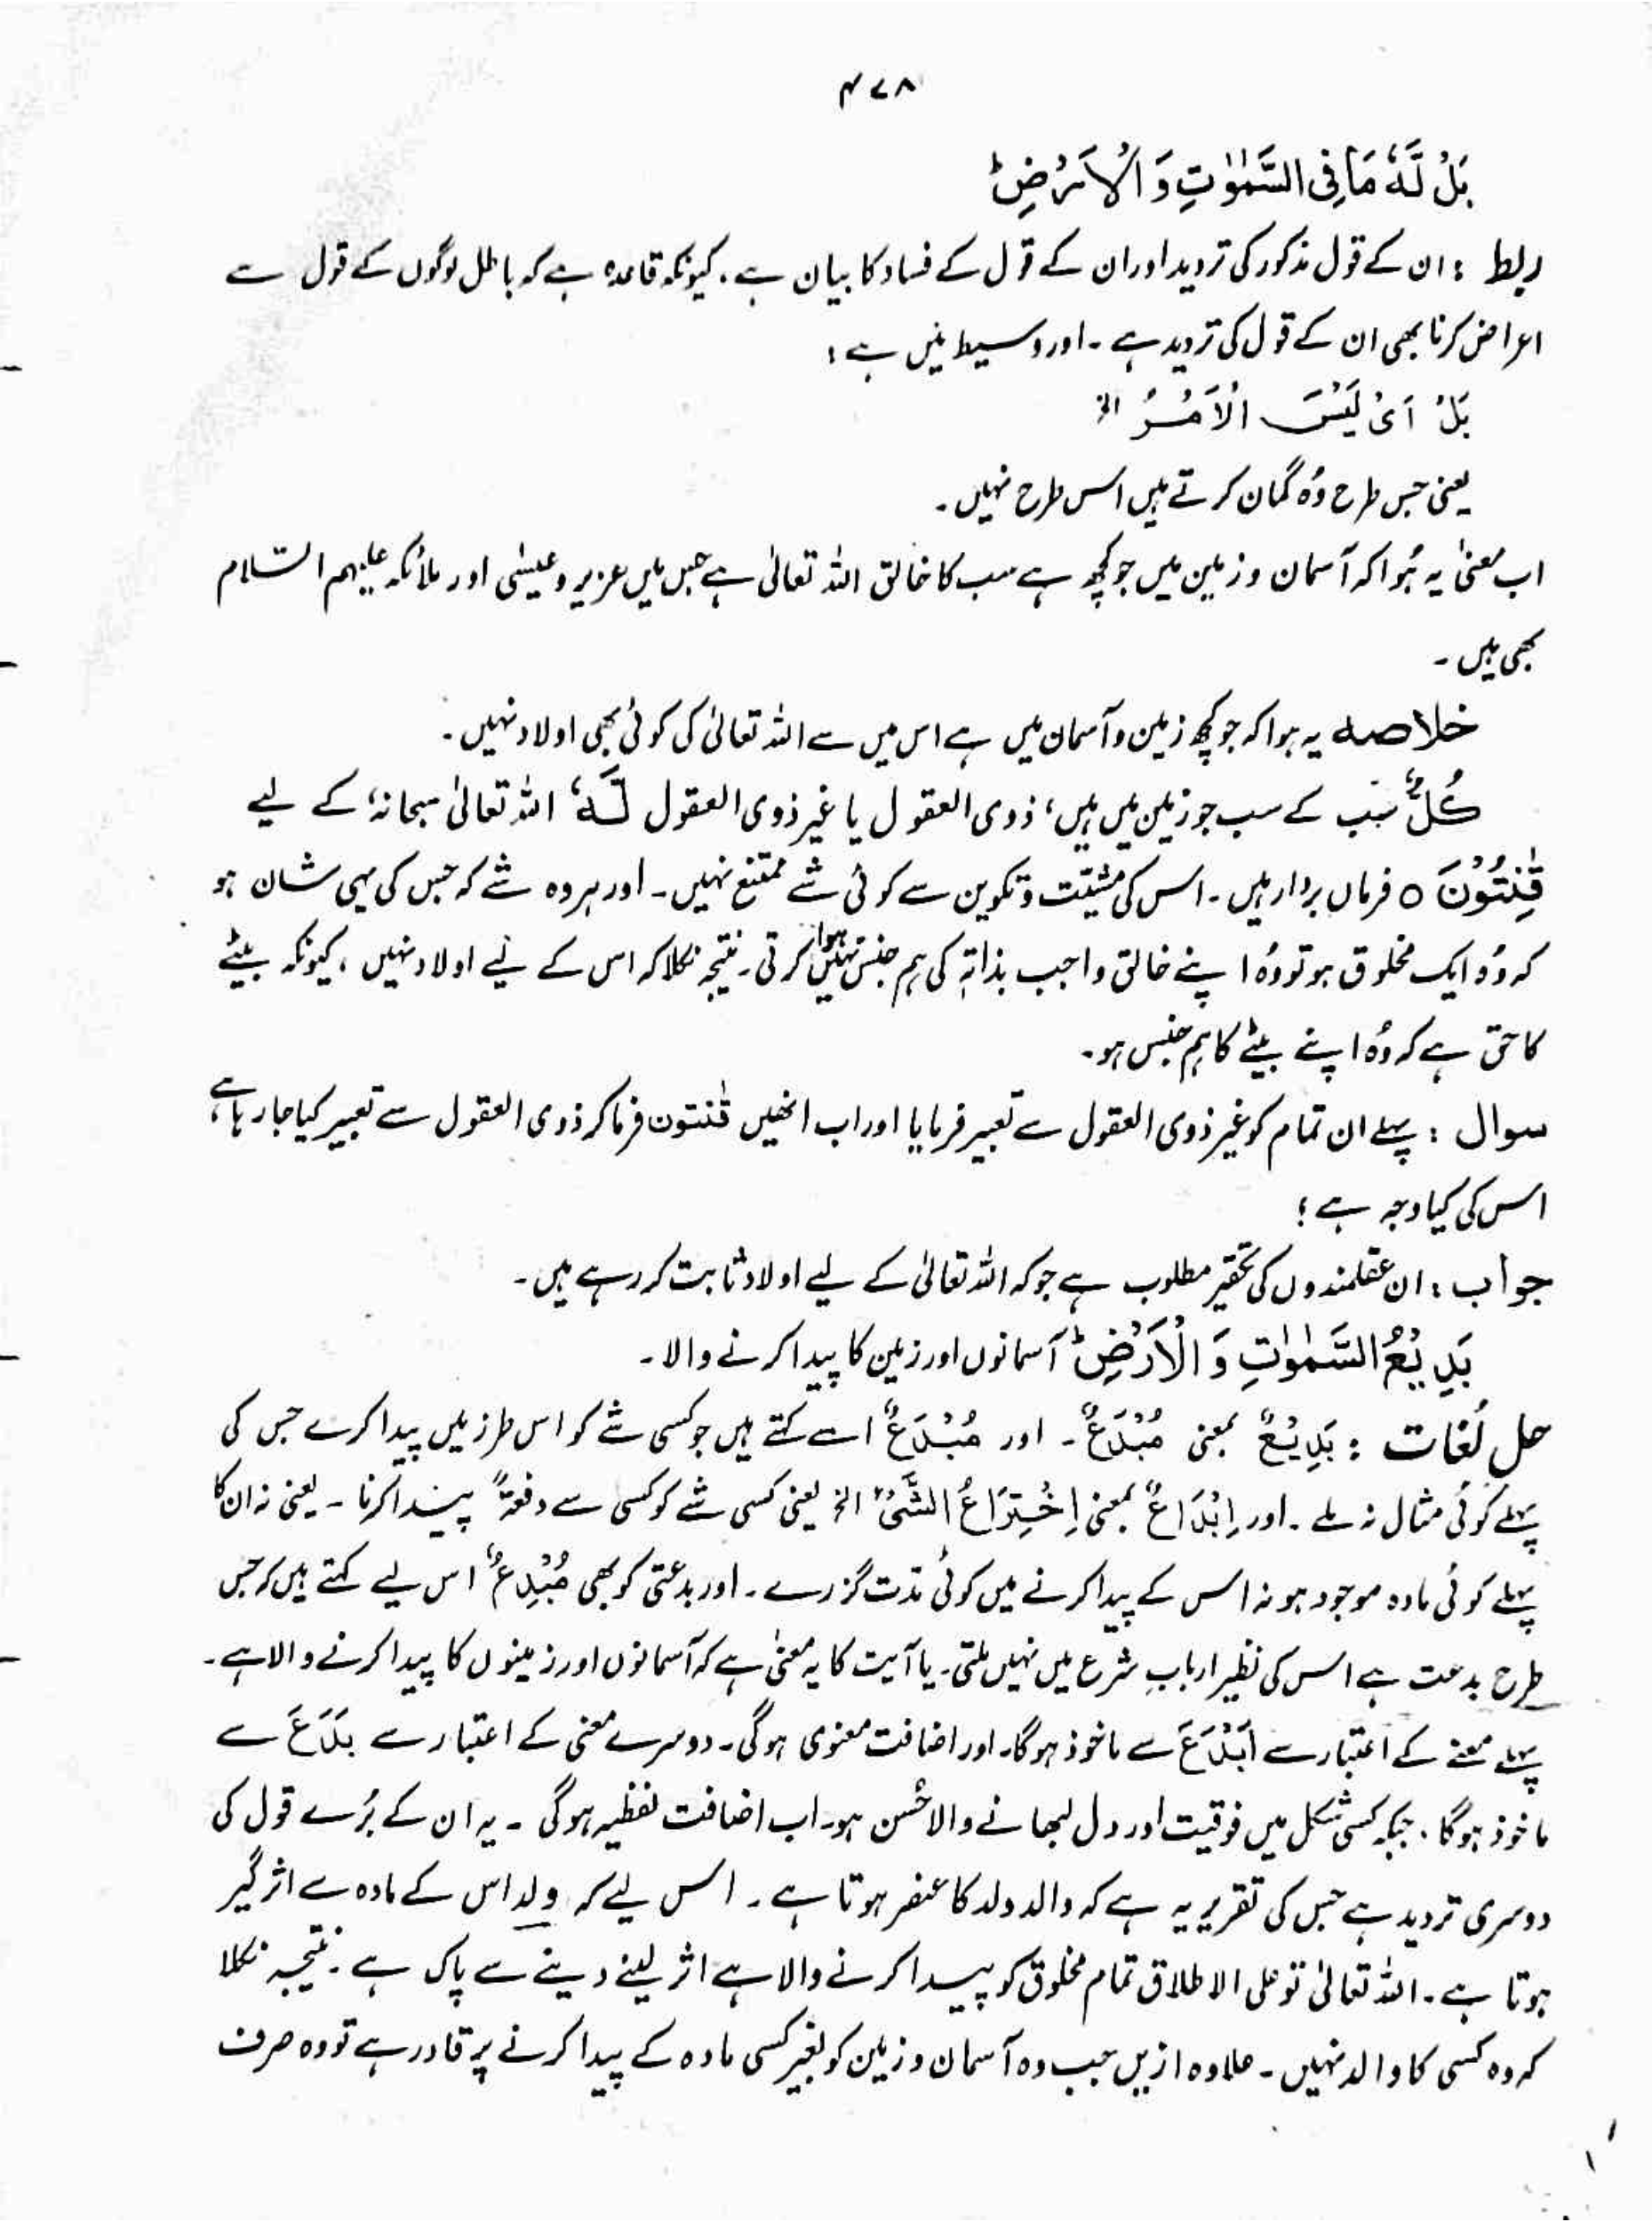 ۴۷۸
بَلْ لَّهٗ مَا فِی السَّمٰوٰتِ وَالْاَرْضِ ؕ
ربط : ان کے قول مذکور کی تردید اور ان کے قول کے فساد کا بیان ہے۔ کیونکہ قاعدہ ہے کہ باطل لوگوں کے قول سے
اعراض کرنا بھی ان کے قول کی تردید ہے۔ اور وسیط میں ہے :
بَلْ اَیْ لَیْسَ الْاَمْرُ الخ
یعنی جس طرح وُہ گمان کرتے ہیں اس طرح نہیں۔
اب معنیٰ یہ ہُوا کہ آسمان و زمین میں جو کچھ ہے سب کا خالق اللہ تعالیٰ ہے جس میں عزیر و عیسٰی اور ملائکہ علیہم السّلام
بھی ہیں۔
خلاصہ یہ ہوا کہ جو کچھ زمین و آسمان میں ہے اس میں سے اللہ تعالیٰ کی کوئی بھی اولاد نہیں۔
کُلٌّ سب کے سب جو زمین میں ہیں، ذوی العقول یا غیر ذوی العقول لَّہٗ اللہ تعالیٰ سبحانہٗ کے لیے
قٰنِتُوْنَ ○ فرماں بردار ہیں۔ اس کی مشیّت و تکوین سے کوئی شے ممتنع نہیں۔ اور ہر وہ شے کہ جس کی یہی شان ہو
کہ وُہ ایک مخلوق ہو تو وُہ اپنے خالق واجب بذاتہٖ کی ہم جنس نہیں ہوا کرتی۔ نتیجہ نکلا کہ اس کے لیے اولاد نہیں، کیونکہ بیٹے
کا حق ہے کہ وُہ اپنے بیٹے کا ہم جنس ہو۔
سوال : پہلے ان تمام کو غیر ذوی العقول سے تعبیر فرمایا اور اب انھیں قٰنتون فرما کر ذوی العقول سے تعبیر کیا جا رہا ہے،
اس کی کیا وجہ ہے؟
جواب : ان عقلمندوں کی تحقیر مطلوب ہے جو کہ اللہ تعالیٰ کے لیے اولاد ثابت کر رہے ہیں۔
بَدِیْعُ السَّمٰوٰتِ وَ الْاَرْضِ ؕ آسمانوں اور زمین کا پیدا کرنے والا۔
حل لُغات : بَدِیْعٌ بمعنی مُبْدَعٌ۔ اور مُبْدَعٌ اسے کہتے ہیں جو کسی شے کو اس طرز میں پیدا کرے جس کی
پہلے کوئی مثال نہ ملے۔ اور اِبْدَاعٌ بمعنی اِخْتِرَاعُ الشَّیْءِ الخ یعنی کسی شے کو کسی سے دفعۃً پیدا کرنا۔ یعنی نہ ان کا
پہلے کوئی مادہ موجود ہو نہ اس کے پیدا کرنے میں کوئی مدّت گزرے۔ اور بدعتی کو بھی مُبْدِعٌ اس لیے کہتے ہیں کہ جس
طرح بدعت ہے اس کی نظیر اربابِ شرع میں نہیں ملتی۔ یا آیت کا یہ معنیٰ ہے کہ آسمانوں اور زمینوں کا پیدا کرنے والا ہے۔
پہلے معنے کے اعتبار سے اَبْدَعَ سے ماخوذ ہوگا۔ اور اضافت معنوی ہوگی۔ دوسرے معنی کے اعتبار سے بَدَعَ سے
ماخوذ ہوگا۔ جبکہ کسی شکل میں فوقیت اور دل لبھانے والا حُسن ہو۔ اب اضافت لفظیہ ہوگی۔ یہ ان کے بُرے قول کی
دوسری تردید ہے جس کی تقریر یہ ہے کہ والد ولد کا عنصر ہوتا ہے۔ اس لیے کہ ولد اس کے مادہ سے اثر گیر
ہوتا ہے۔ اللہ تعالیٰ تو علی الاطلاق تمام مخلوق کو پیدا کرنے والا ہے اثر لینے دینے سے پاک ہے۔ نتیجہ نکلا
کہ وہ کسی کا والد نہیں۔ علاوہ ازیں جب وہ آسمان و زمین کو بغیر کسی مادہ کے پیدا کرنے پر قادر ہے تو وہ صرف